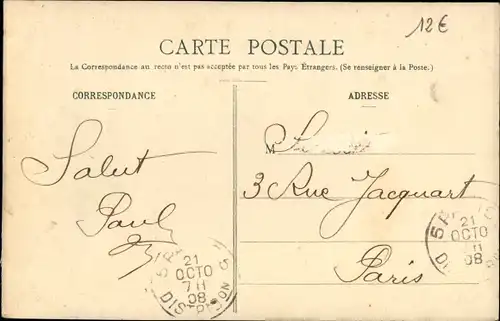 12€
CARTE POSTALE
La Correspondance au recto n'est pas acceptée par tous les Pays Étrangers. (Se renseigner à la Poste.)
CORRESPONDANCE
ADRESSE
Salut
Paul
M
3 Rue Jacquart
Paris
21
OCTO
08
DISTRIBUTION
21
OCTO
08